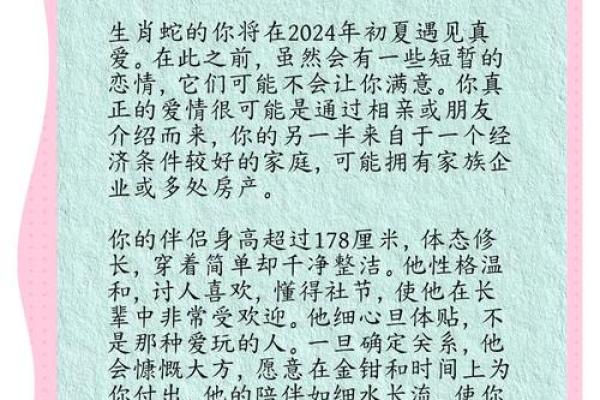 生肖蛇的你将在2024年初夏遇见真
爱。在此之前，虽然会有一些短暂的
恋情，它们可能不会让你满意。你真
正的爱情很可能是通过相亲或朋友
介绍而来，你的另一半来自于一个经
济条件较好的家庭，可能拥有家族企
业或多处房产。
你的伴侣身高超过178厘米，体态修
长，穿着简单却千净整洁。他性格温
和，讨人喜欢，懂得社节，使他在长
辈中非常受欢迎。他细心旦体贴，不
是那种爱玩的人。一旦确定关系，他
会慷慨大方，愿意在金钳和时间上为
你付出。他的陪伴如细水长流，使你